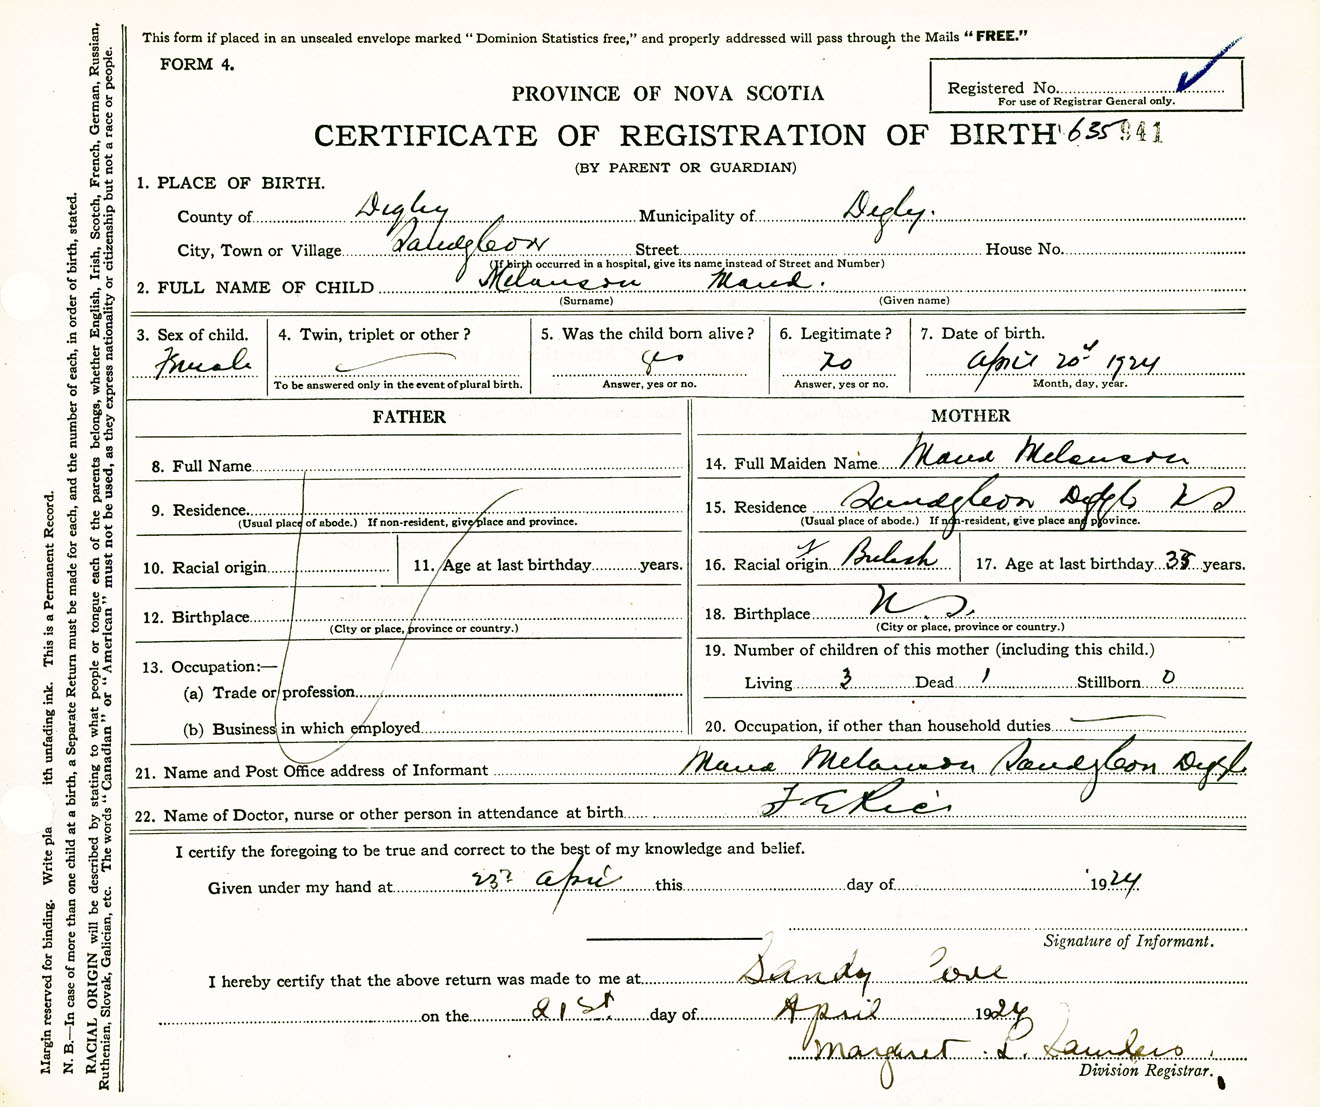 This form if placed in an unsealed envelope marked “Dominion Statistics free,” and properly addressed will pass through the Mails “FREE.”
FORM 4.
Registered No.
For use of Registrar General only.
PROVINCE OF NOVA SCOTIA
CERTIFICATE OF REGISTRATION OF BIRTH 635 941
(BY PARENT OR GUARDIAN)
1. PLACE OF BIRTH.
County of Digby Municipality of Digby.
City, Town or Village Street House No.
(If birth occurred in a hospital, give its name instead of Street and Number)
2. FULL NAME OF CHILD Melanson Maud.
(Surname) (Given name)
3. Sex of child. 4. Twin, triplet or other? 5. Was the child born alive? 6. Legitimate? 7. Date of birth.
Female yes no April 20 1924
To be answered only in the event of plural birth. Answer, yes or no. Answer, yes or no. Month, day, year.
FATHER
8. Full Name
9. Residence.
(Usual place of abode.) If non-resident, give place and province.
10. Racial origin 11. Age at last birthday years.
12. Birthplace
(City or place, province or country.)
13. Occupation:—
(a) Trade or profession
(b) Business in which employed
MOTHER
14. Full Maiden Name Maud Melanson
15. Residence Digby N S
(Usual place of abode.) If non-resident, give place and province.
16. Racial origin 17. Age at last birthday years.
18. Birthplace N S.
(City or place, province or country.)
19. Number of children of this mother (including this child.)
Living 3 Dead 1 Stillborn 0
20. Occupation, if other than household duties
21. Name and Post Office address of Informant Maud Melanson Digby
22. Name of Doctor, nurse or other person in attendance at birth F E Rice
I certify the foregoing to be true and correct to the best of my knowledge and belief.
Given under my hand at 23 April this day of 1924
Signature of Informant.
I hereby certify that the above return was made to me at Sandy Cove
on the 21st day of April 1924
Margaret L. Saunders.
Division Registrar.
Margin reserved for binding. Write pla ith unfading ink. This is a Permanent Record.
N. B.—In case of more than one child at a birth, a Separate Return must be made for each, and the number of each, in order of birth, stated.
RACIAL ORIGIN will be described by stating to what people or tongue each of the parents belongs, whether English, Irish, Scotch, French, German, Russian,
Ruthenian, Slovak, Galician, etc. The words “Canadian” or “American” must not be used, as they express nationality or citizenship but not a race or people.